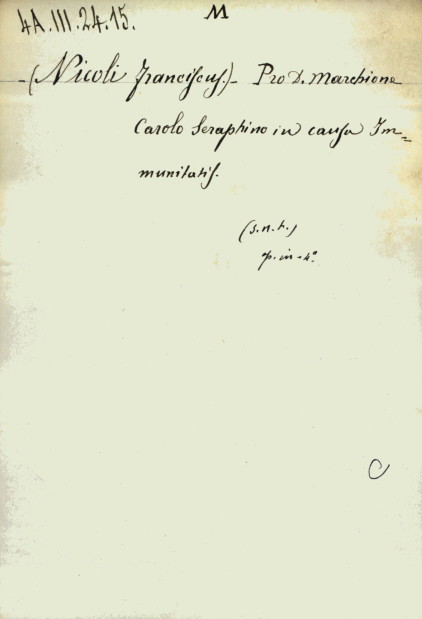 4A.III.24.15.
M
-(Nicoli Franciscus)- Pro D. Marchione
Carolo Seraphino in causa Im=
munitatis.
(s.n.t.)
p. in-4°
C